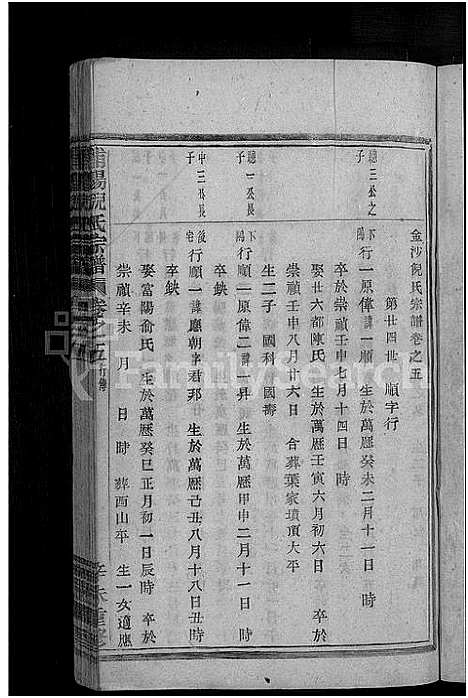 金沙倪氏宗譜卷之五
第廿四世 順字行
總三公之子 下陽 行一原偉諱一順 生於萬厯癸未二月十一日 時
卒於崇禎壬申七月十四日 時
娶廿六都陳氏 生於萬厯壬寅六月初六日 卒於
崇禎壬申八月廿六日 合葬葉家墳頂大平
生二子 國利 國壽
總一公長子 下陽 行順一原偉二諱一昇 生於萬厯甲申二月十一日 時
卒缺
中三公長子 後宅 行順一諱廳朝字君邦 生於萬厯己丑八月十八日丑時
卒缺
娶富陽俞氏 生於萬厯癸巳正月初一日辰時 卒於
崇禎辛未 月 日 時 葬西山平 生一女適應
浦陽倪氏宗譜 卷之五 行傳 辛未重修
FamilySearch